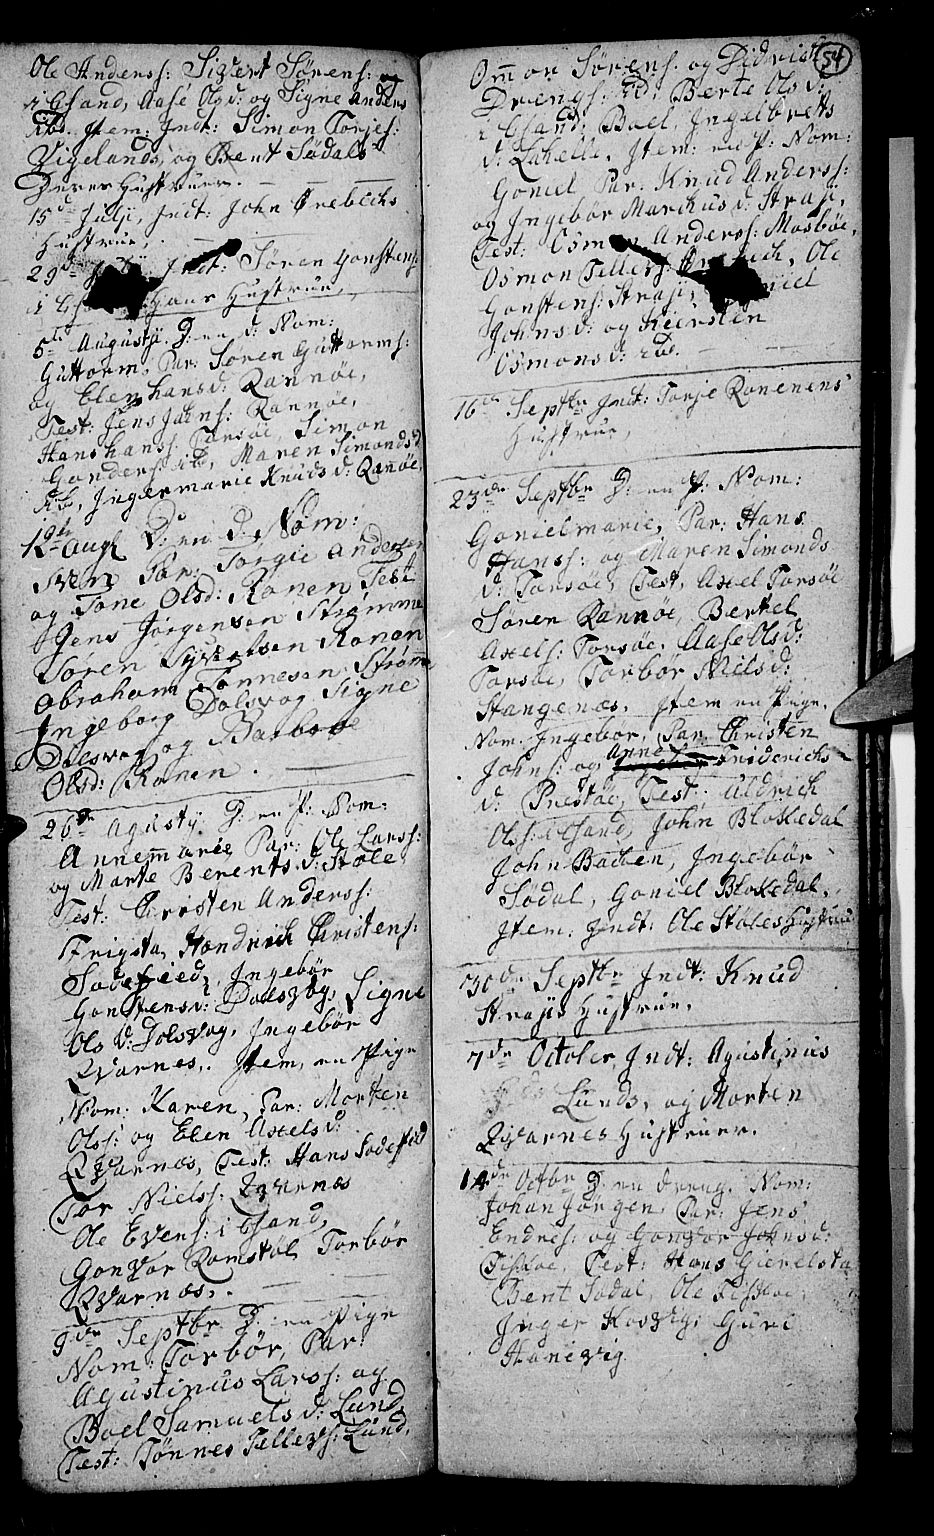 Ole Anderss: Sigvert Sørens: og
i Chsand, Aase Olsd: og Signe Anders
ibd. Item: Indt: Simon Torjes:
Vigelands, og Bent Sødals
Deres Hustruer.
15de Julij, Indt: John Ørebecks
Hustrue,
29de Indt: Søren Gonstens:
i Hans Hustrue,
5te Augustij. D: en d: Nom:
Guttorm, Par: Søren Guttorms:
og Elen Hansd: Randøe,
Test: Jens Jahns: Randøe,
Hans Hanss: Torsøe, Simon
Gunders: ibd, Maren Simonds d:
ibd, Ingermarie Knuds d: Randøe,
12te Aug D: en d: Nom:
Sven Par: Torgie Andersen
og Tone Olsd: Ronen Test
Jens Jørgensen Strømme
Soren Syvertsen Ronen
Abraham Tønnesen Strømme
Ingeborg Dolsvog Signe
Dolsvog og Barbroe
Olsd: Ronen.
26de Agustij. D: en P: Nom:
Annemarie, Par: Ole Larss:
og Marte Berents d: Støle
Test: Christen Anderss:
Frigsta, Hendrich Christens:
Sødefied, Ingebør
Gonstensd: Dolsvog, Signe
Ols d: Dolsvog, Ingebør
Qvarnes,. Item, en Pige
Nom: Karen, Par: Morten
Olss: og Elen Axelsd:
Qvarnes, Test: Hans Sødefied
Tor Nielss: Qvarnes
Ole Evens: i Chsand,
Gonvor Romstøl Torbør
Qvarnes,.
9de Septbr D: en Pige
Nom: Torbør, Par:
Agustinus Larss: og
Boel Samuels d: Lund,
Test: Tønnes Tellevs: Lund,
54
Ommon Sørens. og Didrich
Drengs: ibd; Berte Ols d:
i Chsand: Boel, Ingelbrets
d: Lahelle, Item: en P: Nom:
Goniel Par: Knud Anderss:
og Ingebør Marchus d: Straji,
Test: Osmon Anderss: Mosbøe,
Osmon Tellevs: Ørebech, Ole
Gonstens: Straji,
Johns d: og Kiersten
Osmonsd: ibd.
16de Septbr Indt: Torje Ronenens
Hustrue,
23de Septbr D: en P: Nom:
Gonielmarie, Par: Hans
Hanss: og Maren Simonds
d: Torsøe, Test, Axel Torsøe
Søren Randøe, Bertel
Axels: Torsøe, Aase Ols d:
Torsøe, Torbor Niels d:
Stangenæs, Item en Pige,
Nom: Ingebør, Par: Christen
Johns: og Anne Friderichs
d: Prestøe, Test: Uldrich
Olss: i Chsand, John Blokkedal
John Bachen, Ingebør
Sødal, Goniel Blokkedal,
Item: Indt: Ole Støles Hustrue
30de Septbr Indt: Knud
Strajis Hustrue,
7de October, Indt: Agustinus
Lunds, og Morten
Qvarnes Hustruer.
14de Octbr D: en dreng. Nom:
Johan Jørgen, Par: Jens
Endres: og Gonvor Johnsd:
Fiskaae, Test: Hans Gieredsta
Bent Sødal, Ole Fiskaae,
Inger Kosvig, Guri
Hanevig.